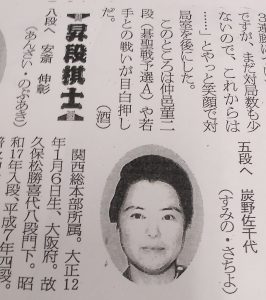 ですが、まだ対局数も少
ないので、これからは
……」とやっと笑顔で対
局室を後にした。
このところは仲邑菫二
段（碁聖戦予選Ａ）や若
手との戦いが目白押し
だ。　（酒）
【昇段棋士】
八段へ　安斎　伸彰
（あんざい・のぶあき）
五段へ　炭野佐千代
（すみの・さちよ）
関西総本部所属。大正12
年１月６日生、大阪府。故
久保松勝喜代八段門下。昭
和17年入段、平成７年四段。